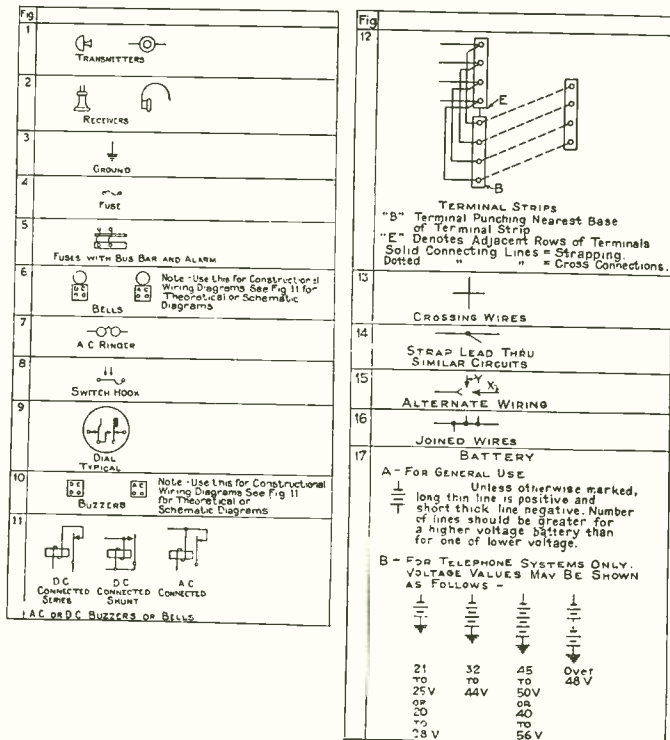 Fig
1
TRANSMITTERS
2
RECEIVERS
3
GROUND
4
FUSE
5
FUSES WITH BUS BAR AND ALARM
6
Note - Use this for Constructional
Wiring Diagrams See Fig 11 for
Theoretical or Schematic
Diagrams
D C
A C
BELLS
7
A C RINGER
8
SWITCH HOOK
9
DIAL
TYPICAL
10
D C
A C
BUZZERS
Note - Use this for Constructional
Wiring Diagrams See Fig 11
for Theoretical or
Schematic Diagrams
11
D C
CONNECTED
SERIES
D C
CONNECTED
SHUNT
A C
CONNECTED
A C OR D C BUZZERS OR BELLS
Fig
12
E
B
TERMINAL STRIPS
"B" Terminal Punching Nearest Base
of Terminal Strip
"E" Denotes Adjacent Rows of Terminals
Solid Connecting Lines = Strapping.
Dotted " " = Cross Connections.
13
CROSSING WIRES
14
STRAP LEAD THRU
SIMILAR CIRCUITS
15
Y X
ALTERNATE WIRING
16
JOINED WIRES
17
BATTERY
A - FOR GENERAL USE
Unless otherwise marked,
long thin line is positive and
short thick line negative. Number
of lines should be greater for
a higher voltage battery than
for one of lower voltage.
B - FOR TELEPHONE SYSTEMS ONLY.
VOLTAGE VALUES MAY BE SHOWN
AS FOLLOWS -
21 32 45 Over
TO TO TO 48 V
25 V 44 V 50 V
OR OR
20 40
TO TO
28 V 56 V